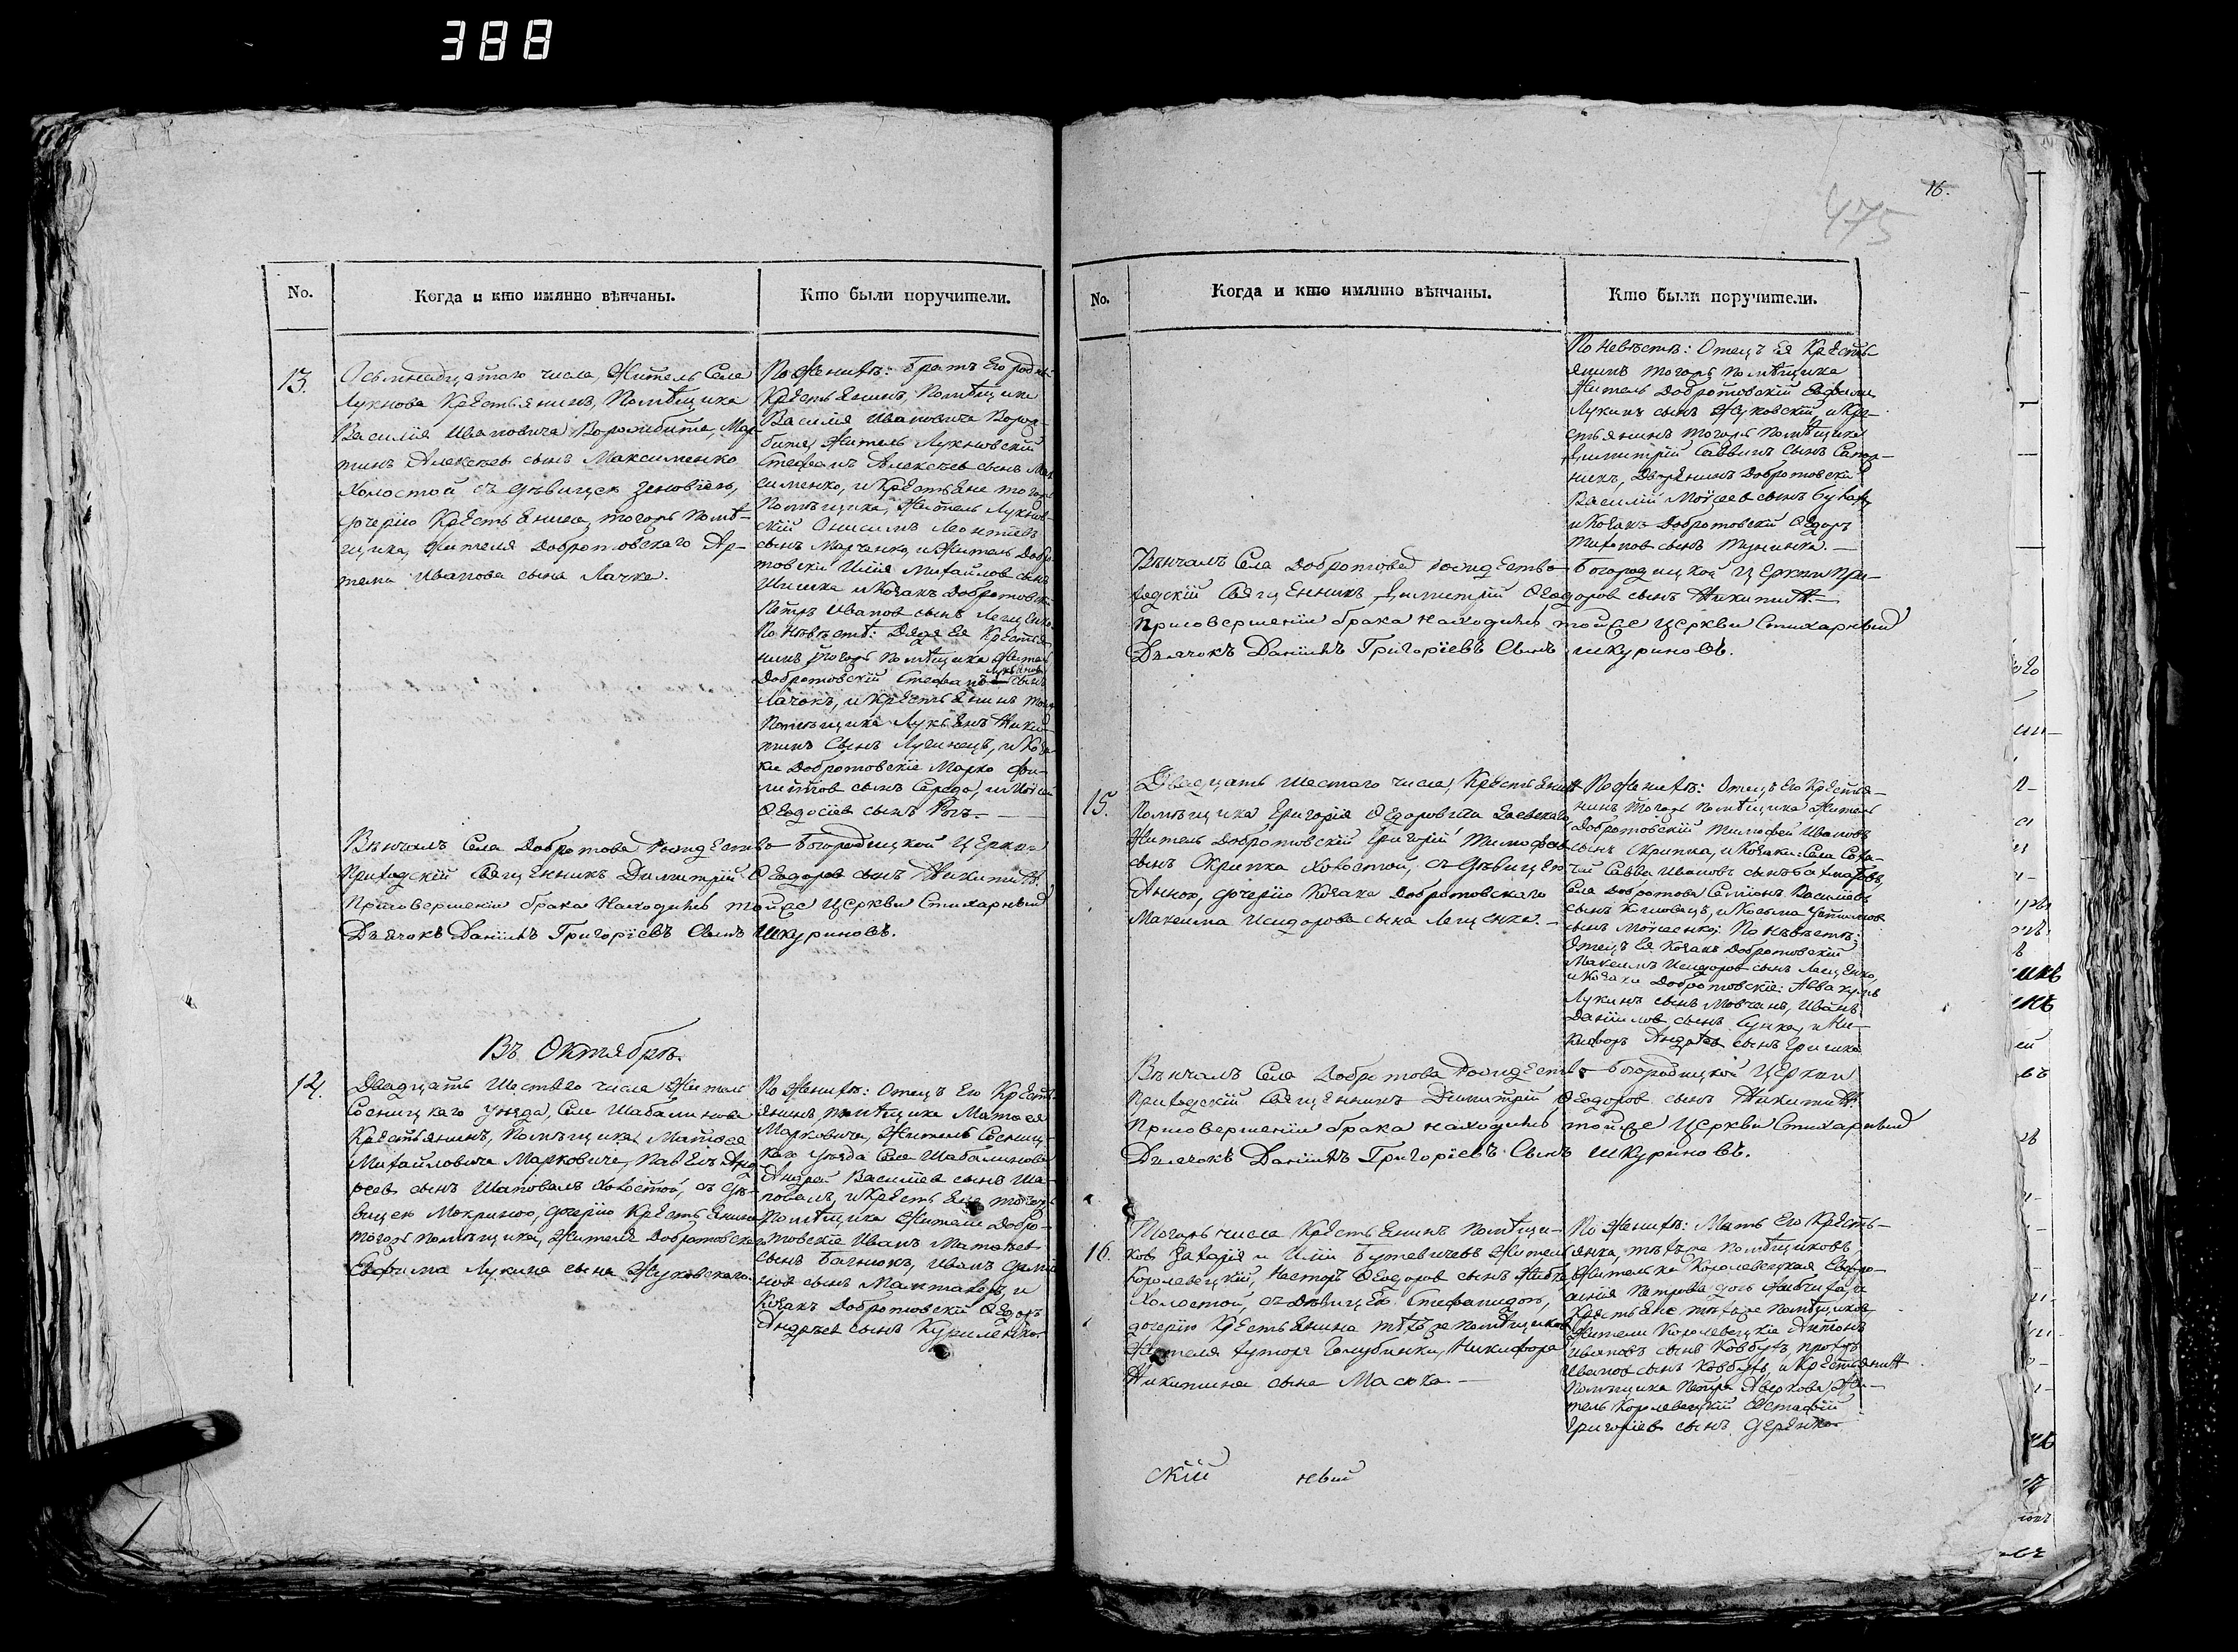 388
No.
Когда и кто имянно вѣнчаны.
Кто были поручители.
13.
Осьмнадцатого числа, Житель Села
Лукнова Крестьянинъ, Помѣщика
Василія Ивановича Ворожбита, Мар-
тинъ Алексѣев сынъ Максименко
Холостой съ дѣвицею Зеновіею,
дочерію Крестьянина, тогожъ помѣ-
щика, жителя Добротовскаго Ар-
тема Иванова сына Лачка.
По Женихѣ: братъ его родный
Крестьянинъ, Помѣщика
Василія Ивановича Ворож-
бита, Житель Лукновскій
Стефанъ Алексѣев сынъ Мак
сименко, и Крестьяне тогожъ
Помѣщика, Житель Лукнов-
скій Онисимъ Леонтіевъ
сынъ Марченко, и Житель Добро
товскій Илія Михайлов сынъ
и Козакъ Добротовскій
Петръ Иванов сынъ Лещенко.
По Невѣстѣ: Дядя ея Крестья
нинъ тогожъ помѣщика Житель
Добротовскій Стефанъ Лукьяновъ сынъ
Лачокъ, и Крестьянинъ тогожъ
Помѣщика Лукьянъ Ники-
тинъ Сынъ и Коза-
ки Добротовскіе Марко Фи-
липпов сынъ Середа, и
Ѳеодосіев сынъ
Вѣнчалъ Села Добротова Рождество-Богородицкой Церкви
Приходскій Священникъ Димитрій Ѳеодоров сынъ Никитинъ.
При совершеніи брака находилсь тойже Церкви Стихарный
Дьячокъ Даніилъ Григоріевъ Сынъ Шкуриновъ.
Въ Октябрѣ.
14.
Двадцать Шестаго числа Житель
Сосницкаго уѣзда, Села Шабалинова
Крестьянинъ, Помѣщика, Матѳея
Михайловича Марковича, Павелъ Анд
реев сынъ Шаповалъ Холостой, съ дѣ-
вицею Мокриною, дочерію Крестьянина
тогожъ помѣщика, жителя Добротовскаго
Евфима Лукина сына Жуковскаго.
По Женихѣ: Отецъ его Кресть-
янинъ, помѣщика Матѳея
Марковича, Житель Сосниц-
каго уѣзда Села Шабалинова
Андрей Василіев сынъ Ша-
повалъ, и Крестьяне тогожъ
Помѣщика Жители Добро-
товскіе Иванъ Матвѣев
сынъ Багнюкъ, Иванъ
нов сынъ и
Козакъ Добротовскій Ѳедоръ
Андреев сынъ Куриленко.
475
16.
No.
Когда и кто имянно вѣнчаны.
Кто были поручители.
По Невѣстѣ: Отецъ ея Кресть-
янинъ тогожъ помѣщика
Житель Добротовскій Евфимъ
Лукинъ сынъ Жуковскій, и Кре-
стьянинъ тогожъ помѣщика
Димитрій Саввинъ сынъ Сапож-
никъ, Дворянинъ Добротовскій
Василій Моѵсеев сынъ
и Козакъ Добротовскій Ѳедоръ
Тихонов сынъ
Вѣнчалъ Села Добротова Рождество-Богородицкой Церкви При-
ходскій Священникъ Димитрій Ѳеодоров сынъ Никитинъ
При совершеніи брака находилсь тойже Церкви Стихарный
Дьячокъ Даніилъ Григоріевъ Сынъ Шкуриновъ.
15.
Двадцать Шестаго числа, Крестьянинъ
Помѣщика Григорія Ѳеодоровича Заевскаго
Житель Добротовскій Григорій Тимофеев
сынъ Скрипка Холостой, съ дѣвицею
Анною, дочерію Козака Добротовскаго
Максима Исидорова сына Лещенка.
По Женихѣ: Отецъ его Крестья-
нинъ тогожъ помѣщика Житель
Добротовскій Тимофей Ивановъ
сынъ Скрипка, и Козаки: Села Соха-
чи Савва Ивановъ сынъ
Села Добротова Симіонъ Василіев
сынъ и Косьма Устиминов
сынъ Моисеенко; По Невѣстѣ:
Отецъ ея Козакъ Добротовскій
Максимъ Исидоров сынъ Лещенко,
и Козаки Добротовскіе: Аввакумъ
Лукинъ сынъ Мовчанъ, Иванъ
Даніилов сынъ и Ни-
кифоръ Андрѣев сынъ
Вѣнчалъ Села Добротова Рождество-Богородицкой Церкви
Приходскій Священникъ Димитрій Ѳеодоров сынъ Никитинъ.
При совершеніи брака находилсь тойже Церкви Стихарный
Дьячокъ Даніилъ Григоріевъ Сынъ Шкуриновъ.
16.
Тогожъ числа Крестьянинъ помѣщи-
ков Захарія и Иліи Бутевичевъ Житель
Королевецкій, Несторъ Ѳеодоров сынъ
Холостой, съ дѣвицею Стефанидою,
дочерію Крестьянина тѣхъ же помѣщиков
Жителя хутора Голубинки, Никифора
Никитина сына Масюка.
По Женихѣ: Мать его Кресть-
янка, тѣхъ же помѣщиковъ,
Жителька Королевецкая Евдо-
кія Петрова дочь
Крестьяне тѣхъ же помѣщиков
Жители Королевецкіе Антонъ
Ивановъ сынъ Ковбухъ, Прохоръ
Иванов сынъ Ковбухъ, и Крестьянинъ
Помѣщика Петра Аверкова Жи-
тель Королевецкій Евстафій
Григоріев сынъ
скій ный